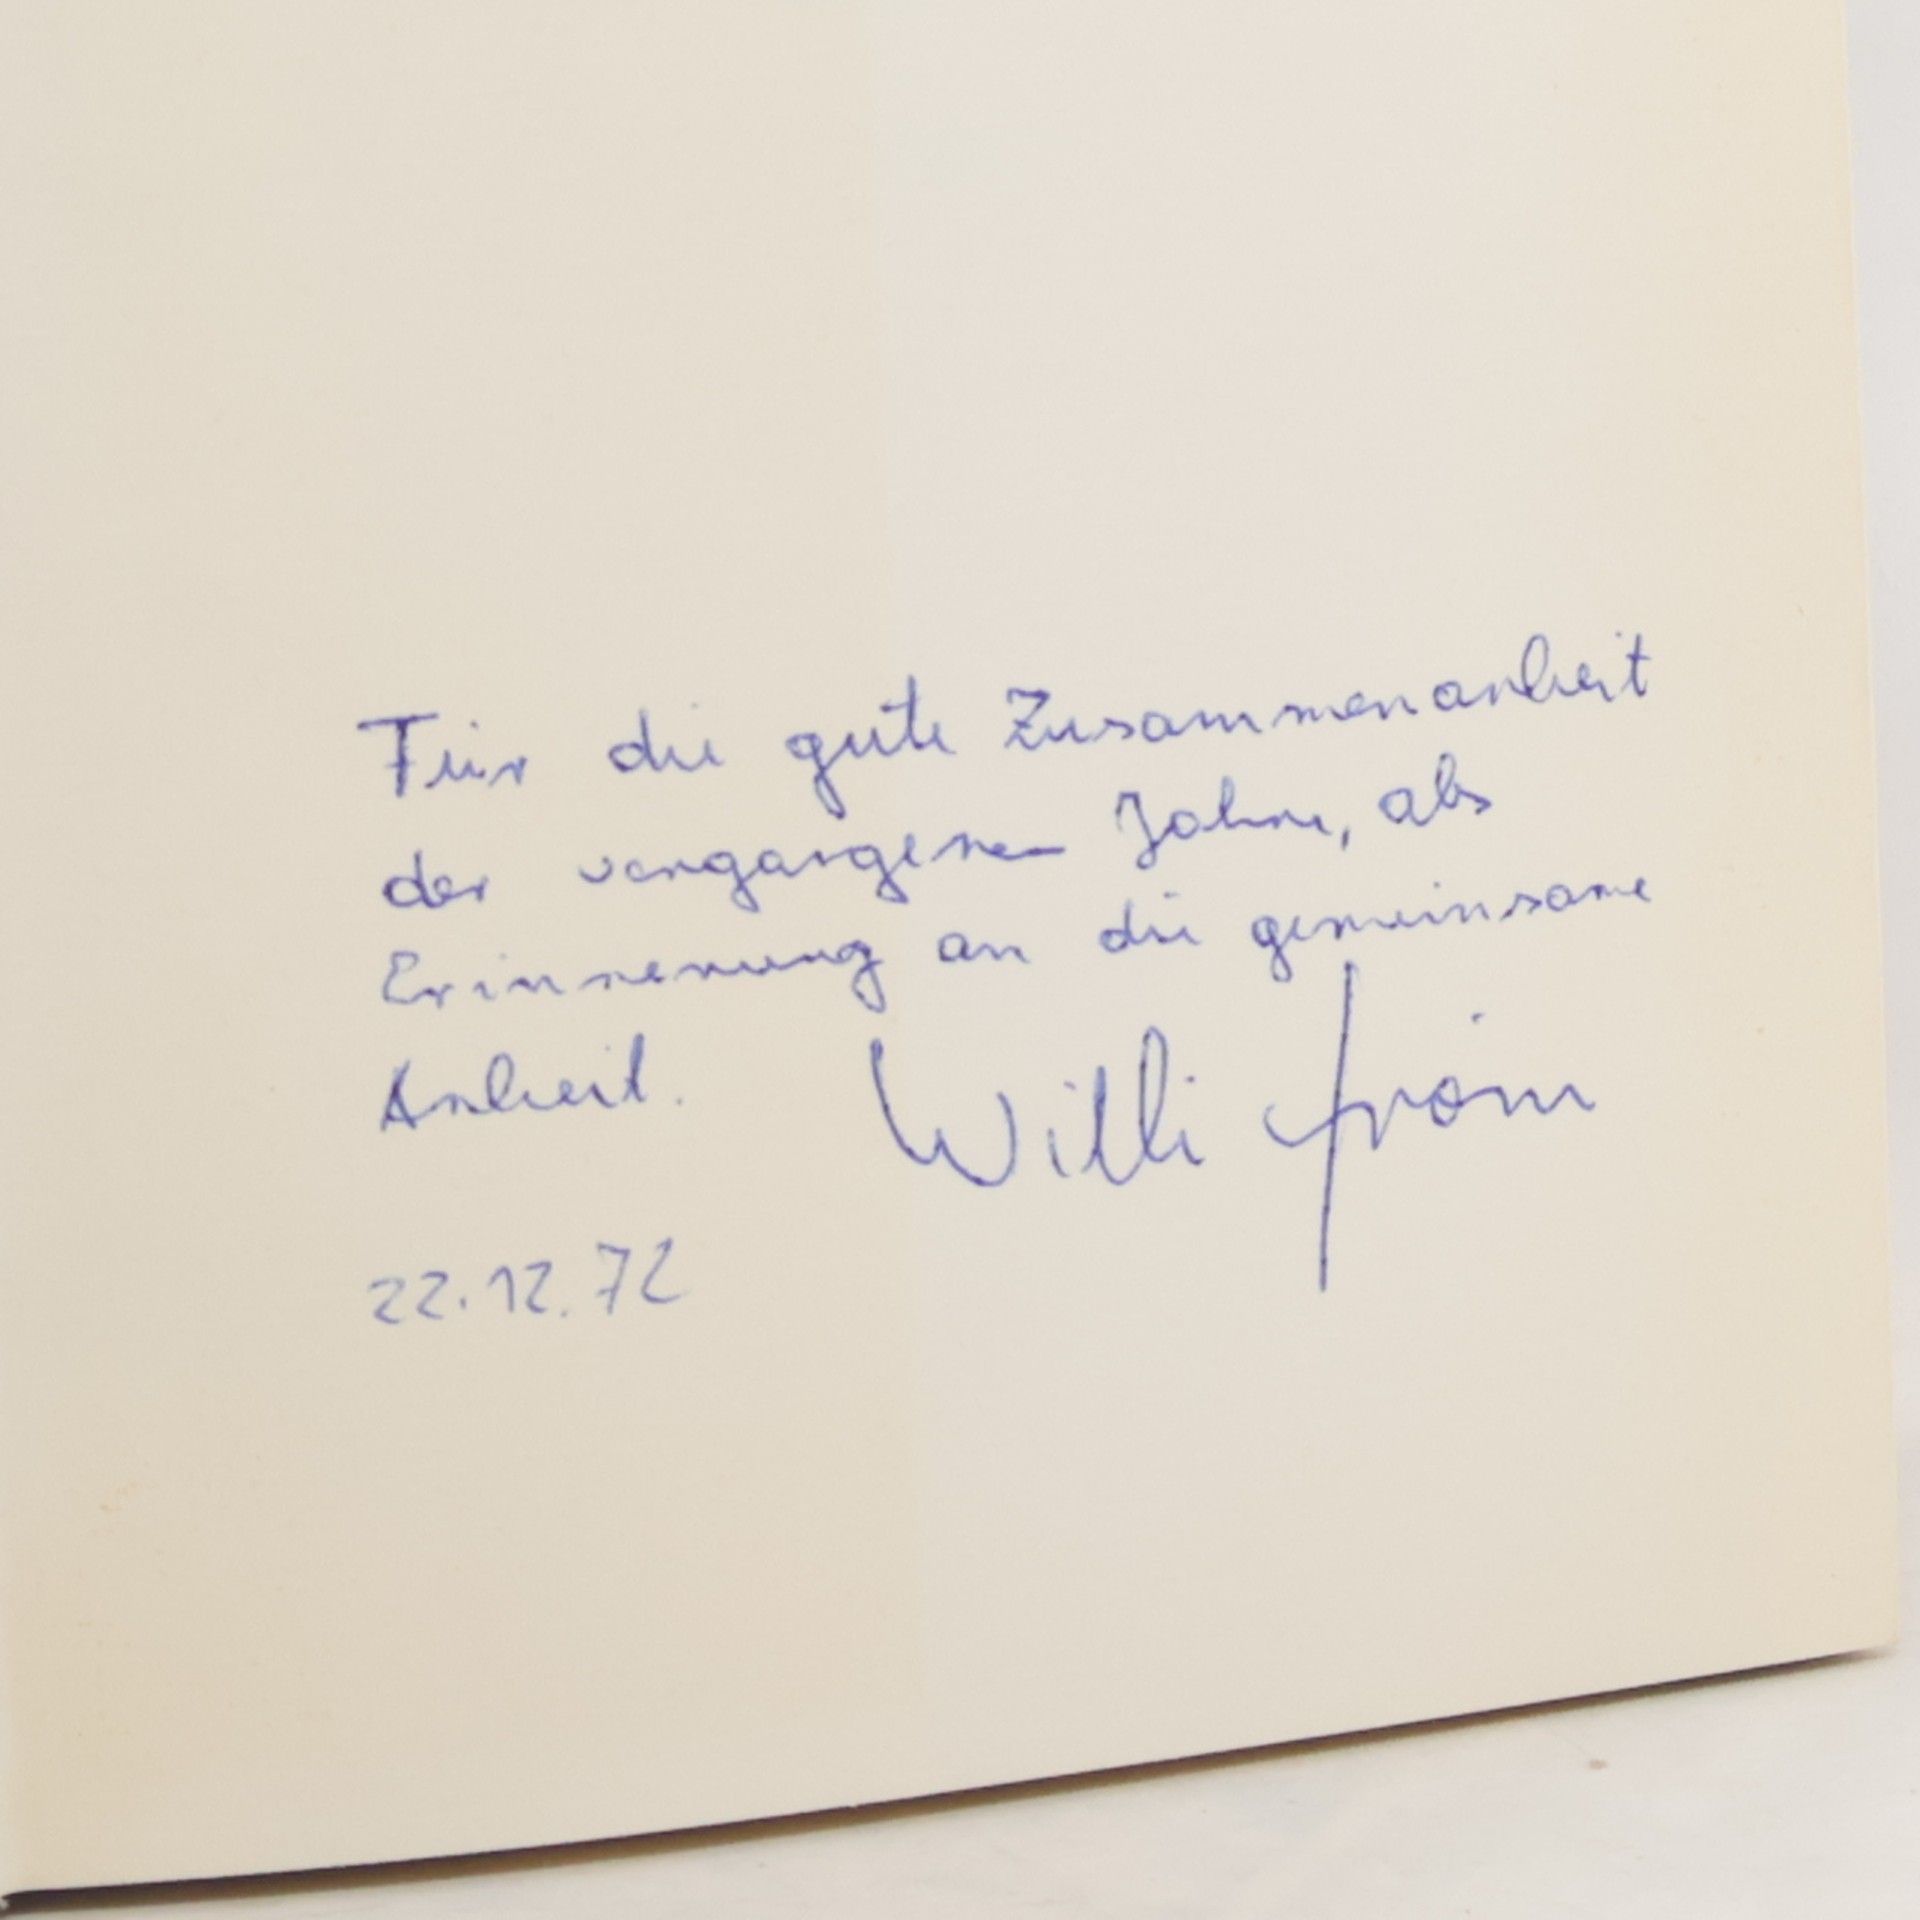 Für die gute Zusammenarbeit
der vergangenen Jahre, als
Erinnerung an die gemeinsame
Arbeit. Willi
22.12.72